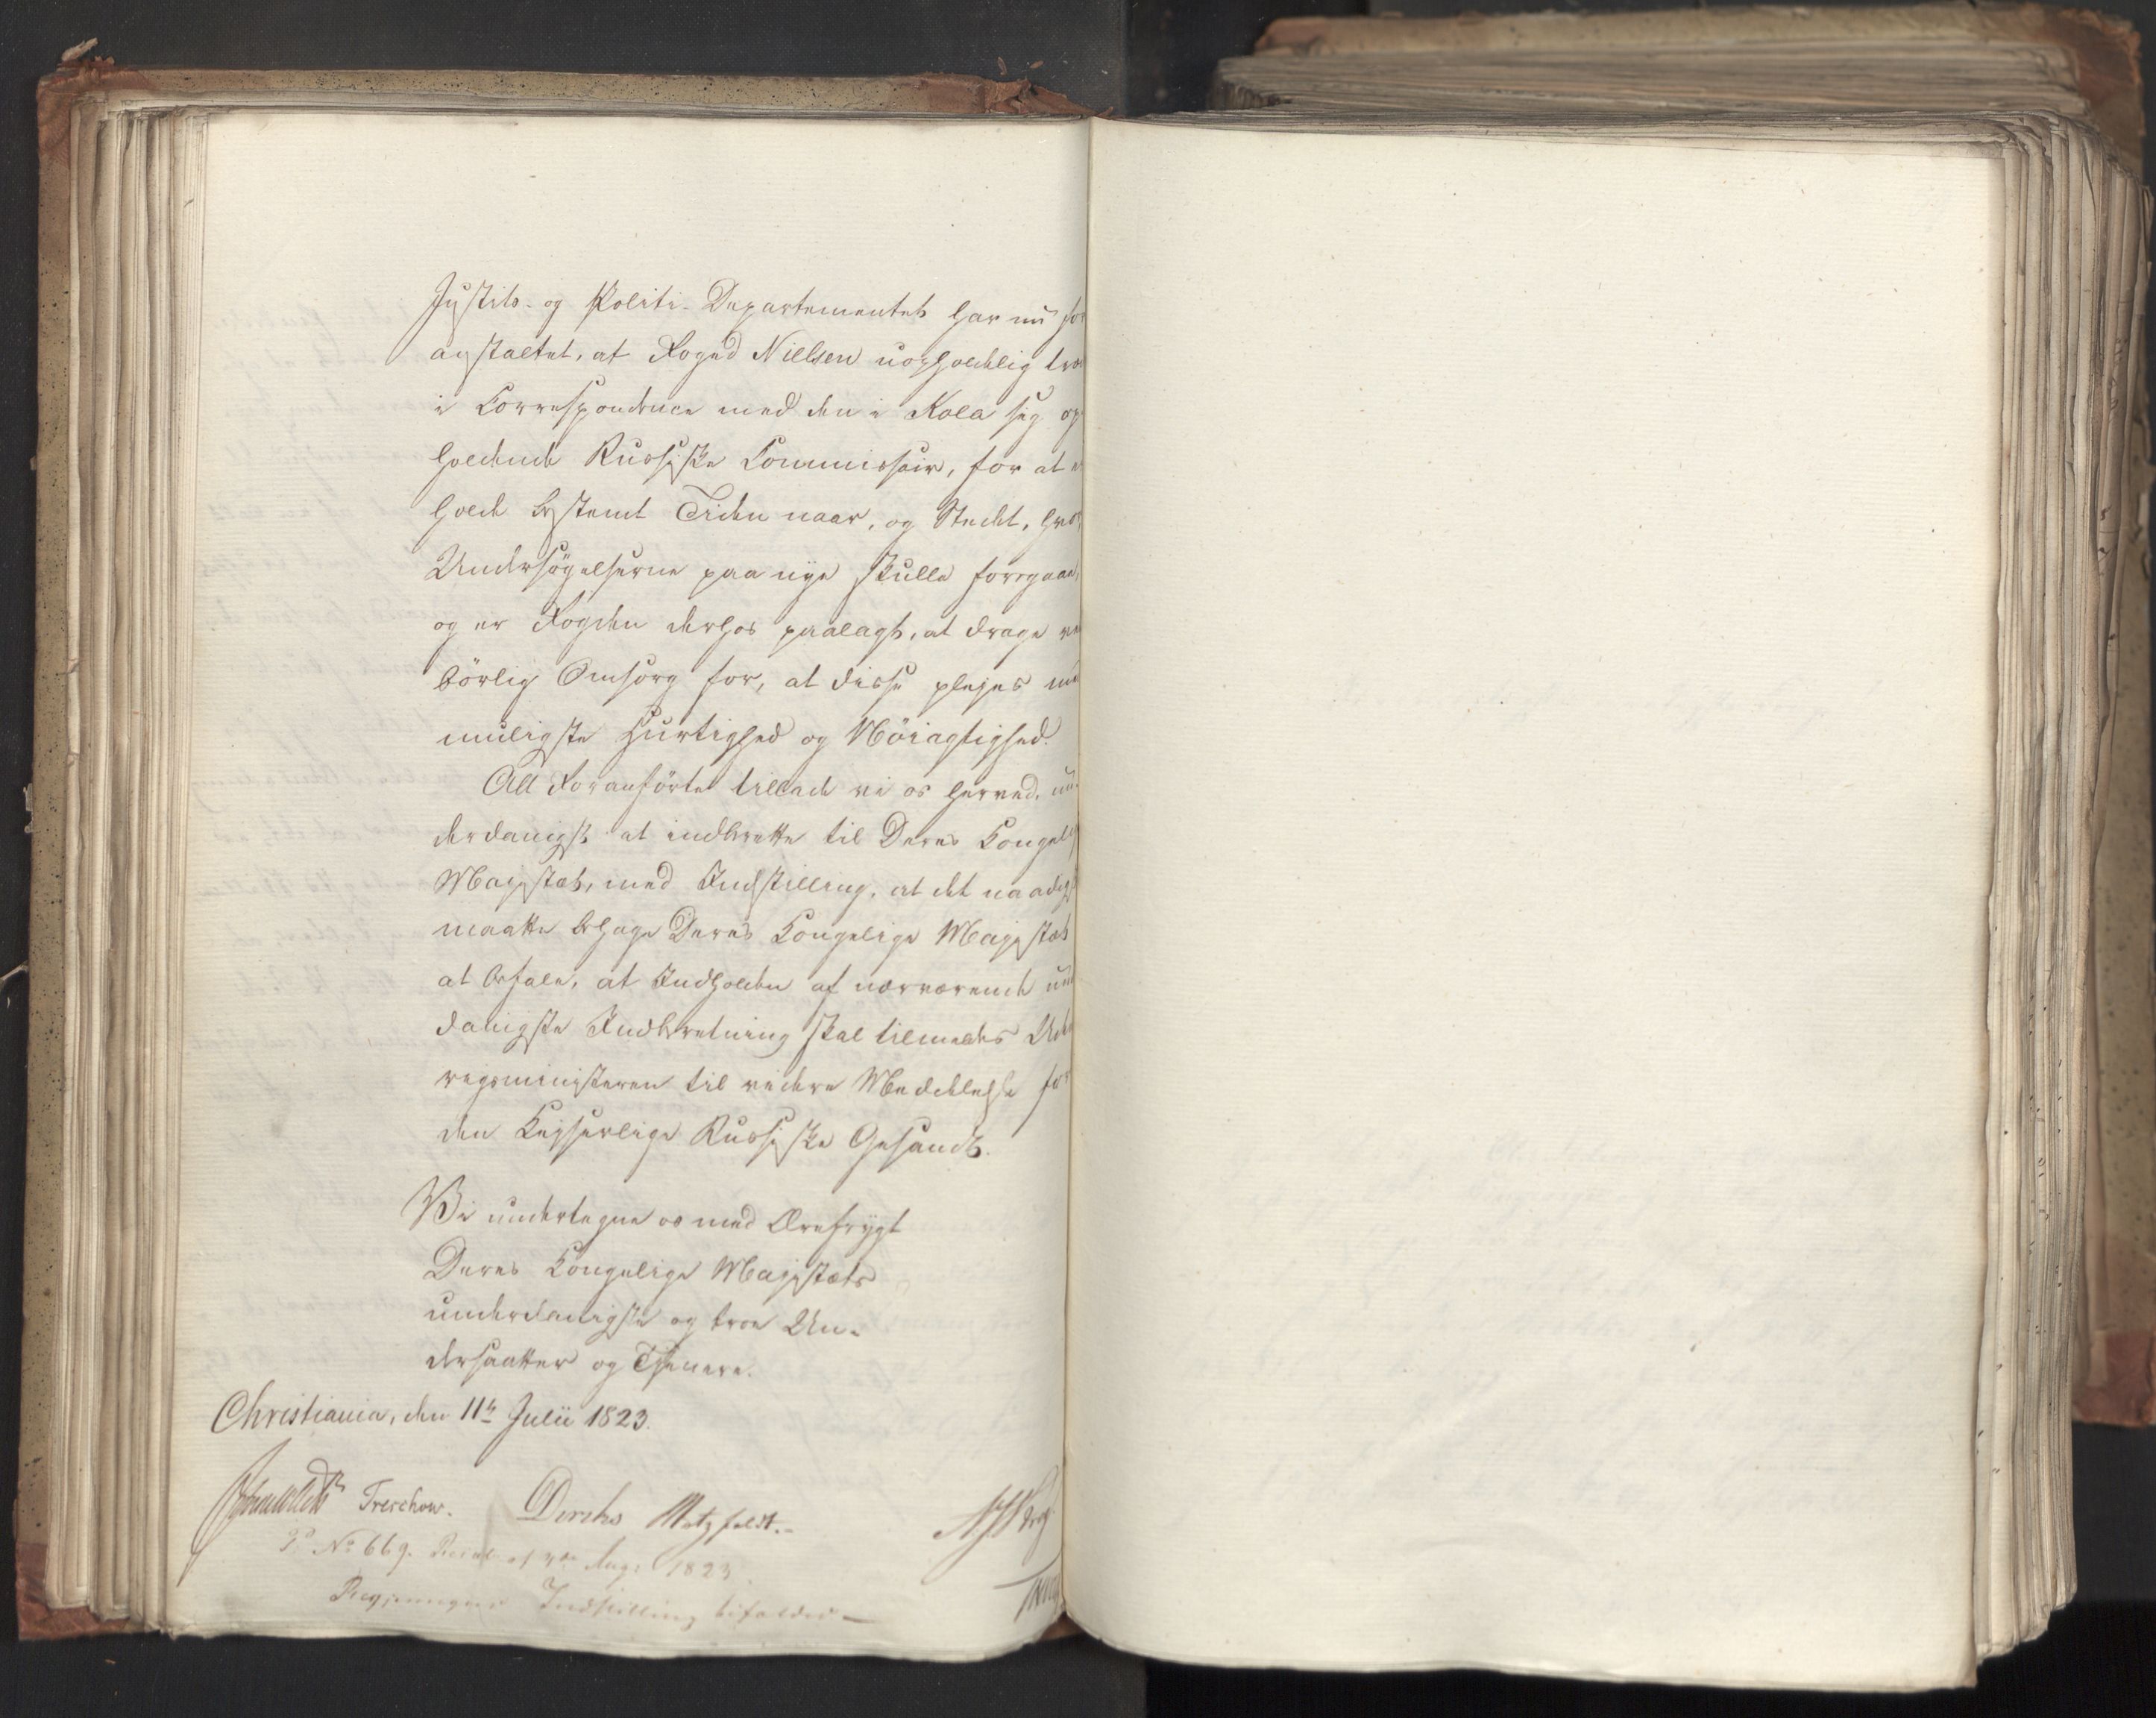 Justits- og Politi-Departementet har nu for
anstaltet, at Foged Nielsen uopholdelig træ
i Correspondence med den i Kola sig op
holdende Russiske Commissair, for at
holde bestemt Tiden naar, og Stedet, hvor
Undersøgelserne paa nye skulle foregaae,
og er Fogden derhos paalagt, at drage
börlig Omsorg for, at disse plejes
muligste Hurtighed og Nöiagtighed.
Alt Foranförte tillade vi os herved, un-
derdanigst at indberette til Deres Kongelig
Majestæt, med Indstilling, at det naadigst
maatte behage Deres Kongelige Majestæt
at befale, at Indholdet af nærværende un
danigste Indberetning skal tilmeldes Uden
rigsministeren til videre Meddelelse for
den Kejserlige Russiske Gesandt.
Vi undertegne os med Ærefrygt
Deres Kongelige Majestæts
underdanigste og troe Un-
dersaatter og Tjenere.
Christiania, den 11te Julii 1823.
Treschow. Diriks Motzfeldt.
No 669. Resol. af 3die Aug. 1823
Regjeringens Indstilling bifaldes